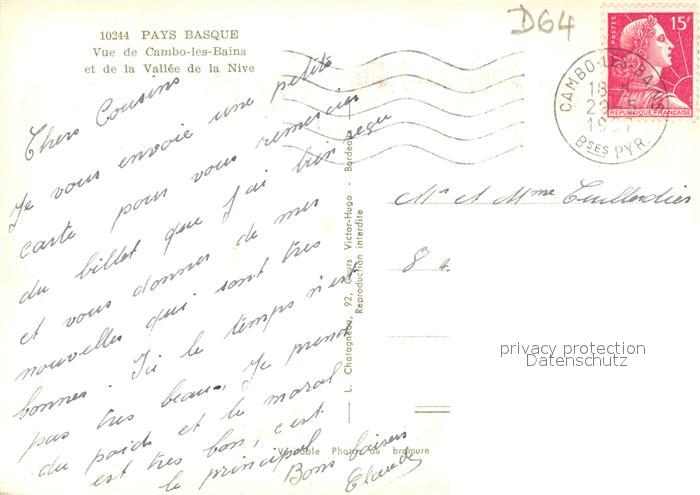 10244 PAYS BASQUE
Vue de Cambo-les-Bains
et de la Vallée de la Nive
D64
POSTES
15F
REPUBLIQUE FRANÇAISE
CAMBO-LES-BAINS
18
1957
BSES PYR.
Chers Cousins
Je vous envoie une petite
carte pour vous remercier
du billet que j'ai bien reçu
et vous donner de mes
nouvelles qui sont très
bonnes. Ici le temps n'est
pas très beau, Je prend
du poids et le moral
est très bon, c'est
le principal
Bons baisers
Claude
L. Chatagneau, 92, Cours Victor-Hugo - Bordeaux
Reproduction interdite
Véritable Photo au bromure
Mr et Mme
8
privacy protection
Datenschutz